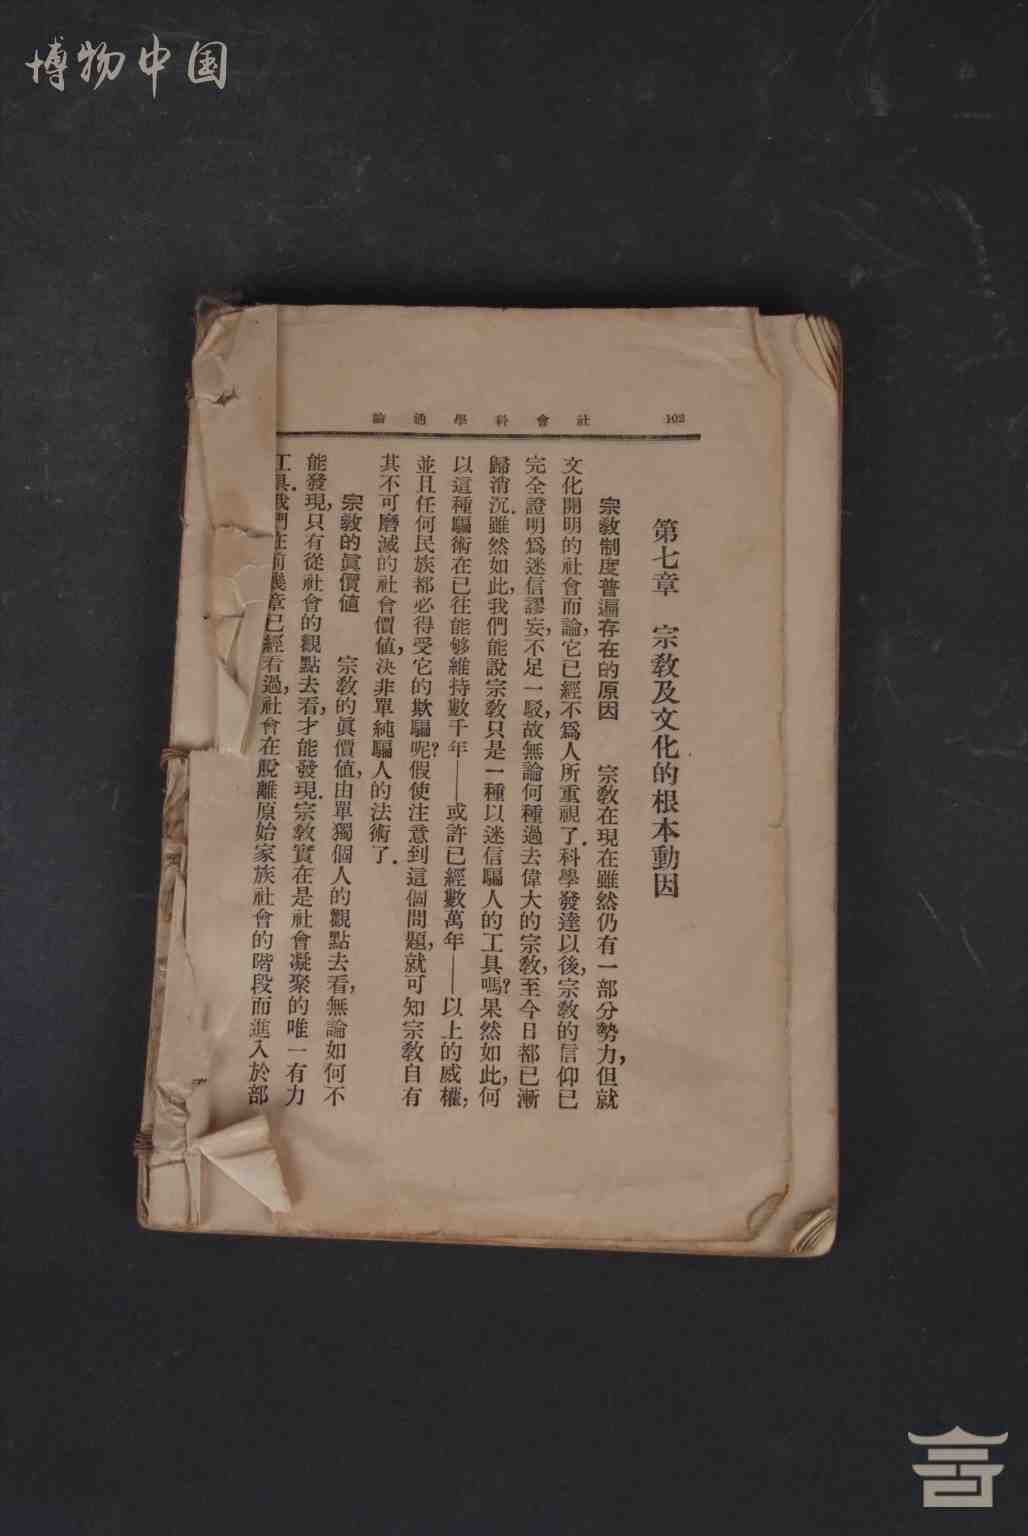 博物中国
社會科學通論
102
第七章　宗教及文化的根本動因
宗教制度普遍存在的原因　宗教在現在雖然仍有一部分勢力,但就
文化開明的社會而論,它已經不爲人所重視了.科學發達以後,宗教的信仰已
完全證明爲迷信謬妄,不足一駁,故無論何種過去偉大的宗教,至今日都已漸
歸消沉.雖然如此,我們能說宗教只是一種以迷信騙人的工具嗎?果然如此,何
以這種騙術在已往能够維持數千年——或許已經數萬年——以上的威權,
並且任何民族都必得受它的欺騙呢?假使注意到這個問題,就可知宗教自有
其不可磨滅的社會價值,決非單純騙人的法術了.
宗教的眞價值　宗教的眞價值,由單獨個人的觀點去看,無論如何不
能發現,只有從社會的觀點去看,才能發現.宗教實在是社會凝聚的唯一有力
工具.我們在前幾章已經看過,社會在脫離原始家族社會的階段而進入於部